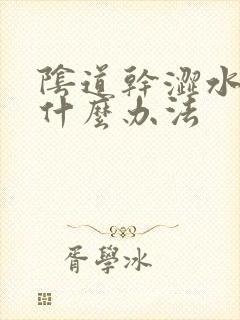 陰道幹澀水
什麼办法
胥學冰